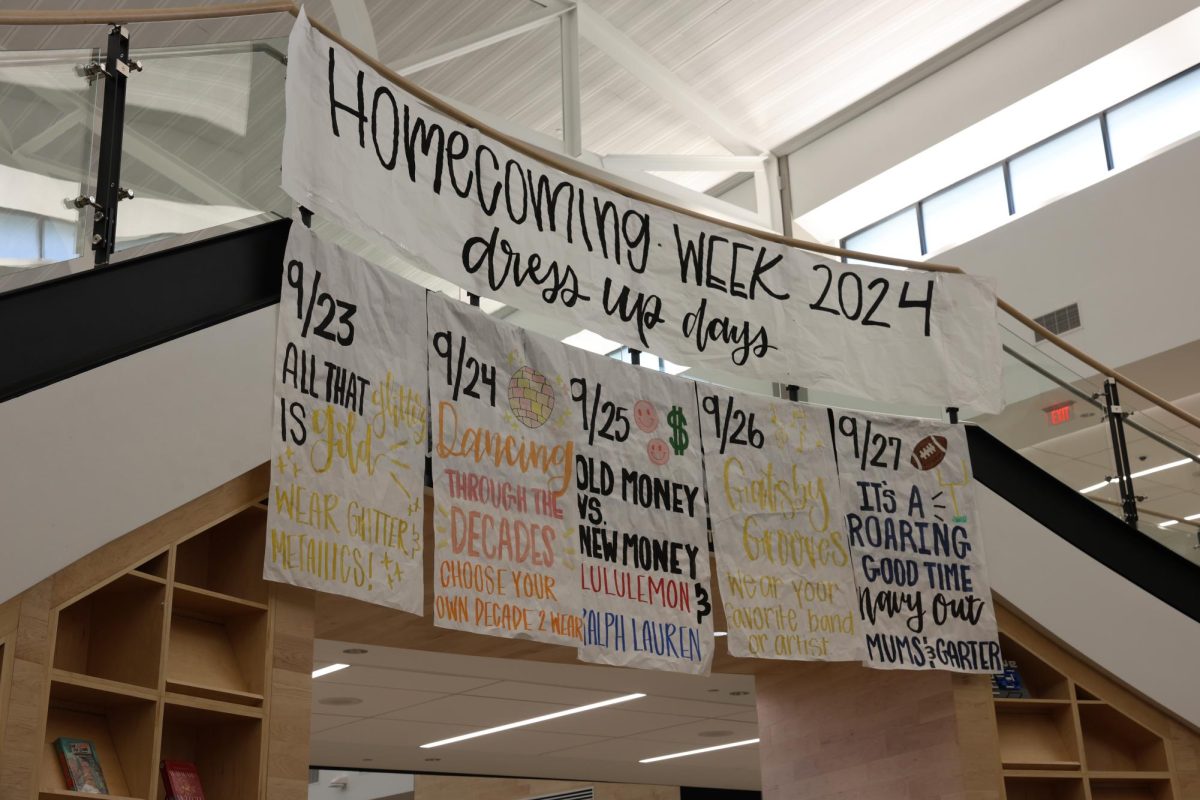 Homecoming WEEK 2024
dress up days
9/23
ALL THAT glitters
IS gold
WEAR GLITTER &
METALLICS!
9/24
Dancing
THROUGH THE
DECADES
CHOOSE YOUR
OWN DECADE 2 WEAR
9/25
$
OLD MONEY
VS.
NEW MONEY
LULULEMON &
RALPH LAUREN
9/26
Gatsby
Grooves
Wear your
favorite band
or artist
9/27
IT'S A
ROARING
GOOD TIME
Navy Out
MUMS & GARTER
EXIT